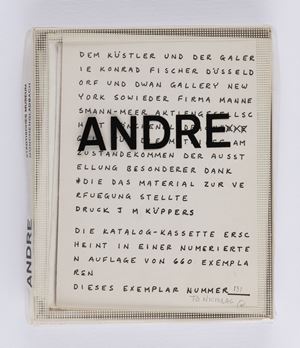 DEM KÜSTLER UND DER GALER
IE KONRAD FISCHER DÜSSELD
ORF UND DWAN GALLERY NEW
YORK SOWIEDER FIRMA MANNE
SMANN-MEER AKTIENGESELLSC
ANDRE
AM
ZUSTANDEKOMMEN DER AUSST
ELLUNG BESONDERER DANK
*DIE DAS MATERIAL ZUR VE
RFUEGUNG STELLTE
DRUCK J M KÜPPERS
DIE KATALOG-KASSETTE ERSC
HEINT IN EINER NUMERIERTE
N AUFLAGE VON 660 EXEMPLA
REN
DIESES EXEMPLAR NUMMER
ANDRE
STÄDTISCHES MUSEUM
MÖNCHENGLADBACH